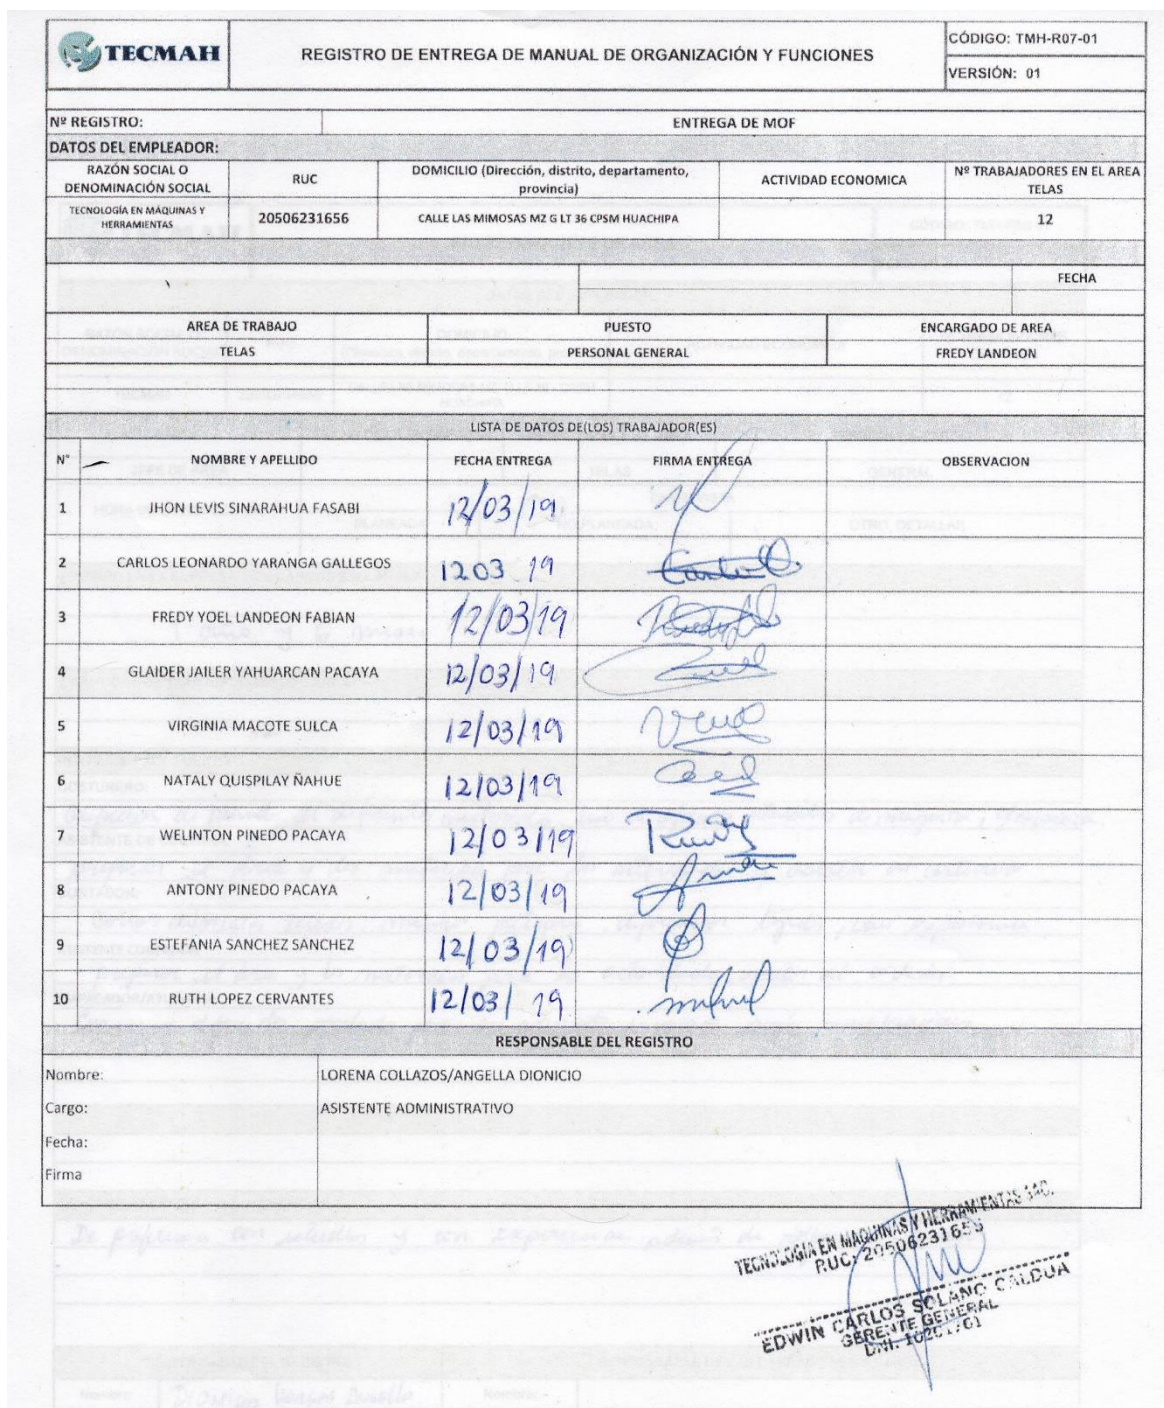 TECMAH
REGISTRO DE ENTREGA DE MANUAL DE ORGANIZACIÓN Y FUNCIONES
CÓDIGO: TMH-R07-01
VERSIÓN: 01
Nº REGISTRO:
ENTREGA DE MOF
DATOS DEL EMPLEADOR:
RAZÓN SOCIAL O DENOMINACIÓN SOCIAL
RUC
DOMICILIO (Dirección, distrito, departamento, provincia)
ACTIVIDAD ECONOMICA
Nº TRABAJADORES EN EL AREA TELAS
TECNOLOGÍA EN MÁQUINAS Y HERRAMIENTAS
20506231656
CALLE LAS MIMOSAS MZ G LT 36 CPSM HUACHIPA
12
FECHA
AREA DE TRABAJO
PUESTO
ENCARGADO DE AREA
TELAS
PERSONAL GENERAL
FREDY LANDEON
LISTA DE DATOS DE(LOS) TRABAJADOR(ES)
N° NOMBRE Y APELLIDO FECHA ENTREGA FIRMA ENTREGA OBSERVACION
1 JHON LEVIS SINARAHUA FASABI 12/03/19
2 CARLOS LEONARDO YARANGA GALLEGOS 1203 19
3 FREDY YOEL LANDEON FABIAN 12/03/19
4 GLAIDER JAILER YAHUARCAN PACAYA 12/03/19
5 VIRGINIA MACOTE SULCA 12/03/19
6 NATALY QUISPILAY ÑAHUE 12/03/19
7 WELINTON PINEDO PACAYA 12/03/19
8 ANTONY PINEDO PACAYA 12/03/19
9 ESTEFANIA SANCHEZ SANCHEZ 12/03/19
10 RUTH LOPEZ CERVANTES 12/03/ 19
RESPONSABLE DEL REGISTRO
Nombre: LORENA COLLAZOS/ANGELLA DIONICIO
Cargo: ASISTENTE ADMINISTRATIVO
Fecha:
Firma
TECNOLOGIA EN MAQUINAS Y HERRAMIENTAS SAC.
RUC: 20506231656
EDWIN CARLOS SOLANO CALDUA
GERENTE GENERAL
DNI.